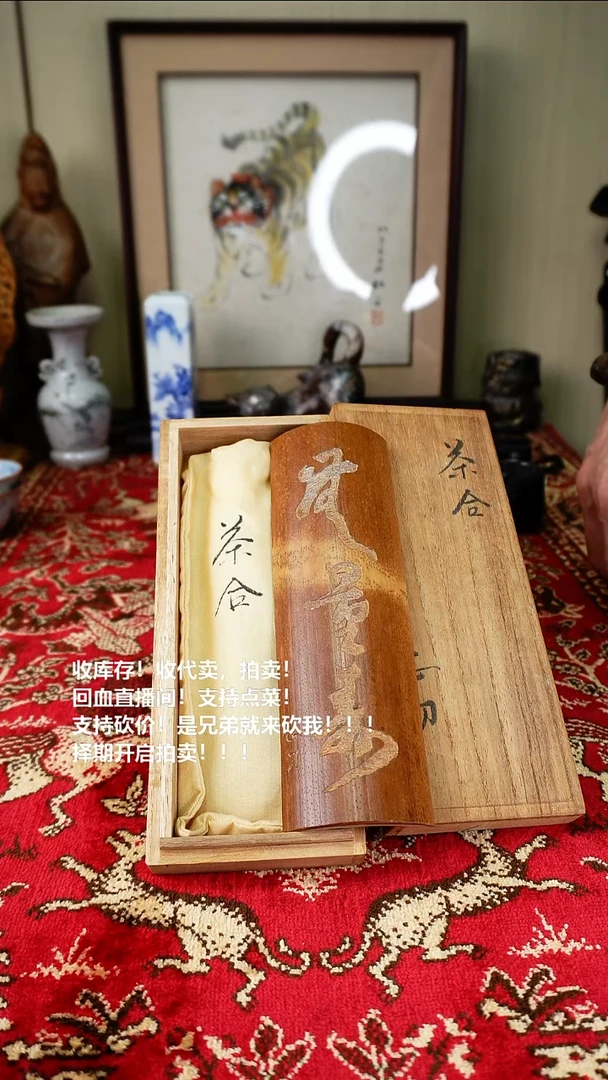 茶合
茶合
無量壽
收库存！收代卖，拍卖！
回血直播间！支持点菜！
支持砍价！是兄弟就来砍我！！！
择期开启拍卖！！！